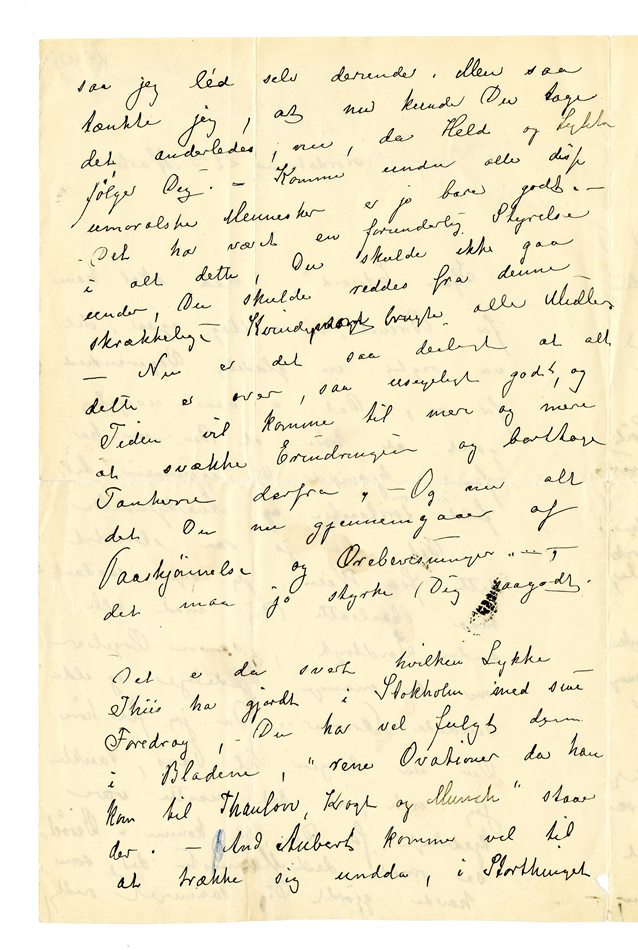 saa jeg léd selv derunder. Men saa
tænkte jeg, at nu kunde Du tage
det anderledes, nu, da Held og Lykke
følger Dig. – Komme under alle disse
umoralske Mennesker er jo bare godt. –
– Det har været en forunderlig Styrelse
i alt dette, Du skulde ikke gaa
under, Du skulde reddes fra denne
skrækkelige brugte alle Midler
– Nu er det saa deiligt at alt
dette er over, saa usigeligt godt, og
Tiden vil komme til mer og mere
at svække Erindringen og borttage
Tankerne derfra „ – Og nu alt
det Du nu gjennemgaaer af
Paaskjønnelse og Æresbevisninger
det maa jo styrke Dig saagodt.
Det er da svært hvilken Lykke
Thiis har gjordt i Stokholm med sine
Foredrag, – Du har vel fulgt dem
i Bladene, "rene Ovationer da han
kom til Thaulow, Krogh og Munch" staar
der. – And Aubert kommer vel til
at trække sig undda, i Storthinget